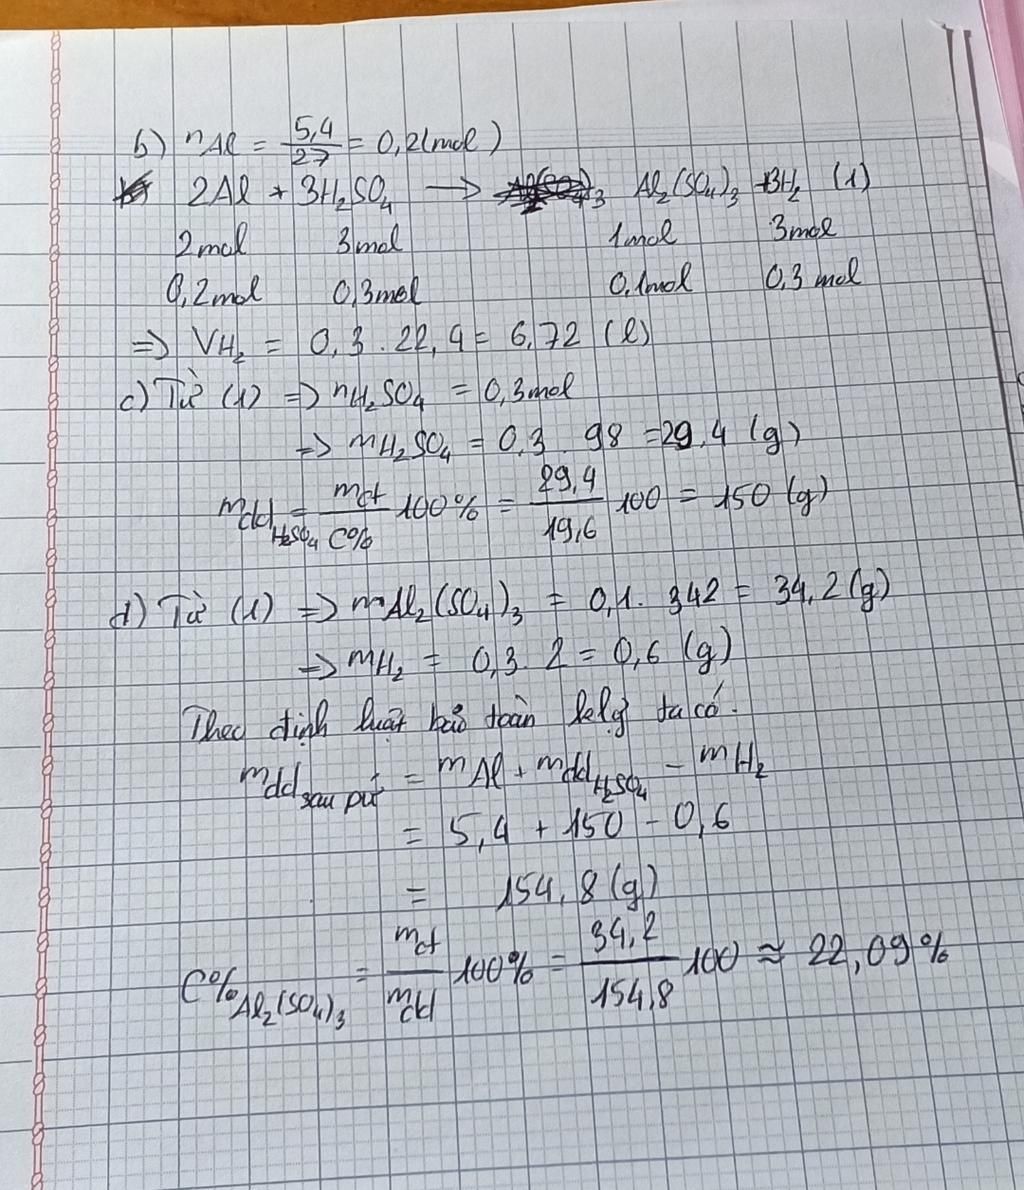 b) nAl = 5,4/27 = 0,2(mol)
2Al + 3H₂SO₄ → Al₂(SO₄)₃ + 3H₂ (1)
2mol 3mol 1mol 3mol
0,2mol 0,3mol 0,1mol 0,3 mol
=> VH₂ = 0,3 . 22,4 = 6,72 (l)
c) Từ (1) => nH₂SO₄ = 0,3mol
=> mH₂SO₄ = 0,3 . 98 = 29,4 (g)
mdd H₂SO₄ = mct/C% 100% = 29,4/19,6 100 = 150 (g)
d) Từ (1) => mAl₂(SO₄)₃ = 0,1 . 342 = 34,2 (g)
=> mH₂ = 0,3 . 2 = 0,6 (g)
Theo định luật bảo toàn klg ta có.
mdd sau pứ = mAl + mdd H₂SO₄ - mH₂
= 5,4 + 150 - 0,6
= 154,8 (g)
C% Al₂(SO₄)₃ = mct/mdd 100% = 34,2/154,8 100 ≈ 22,09%